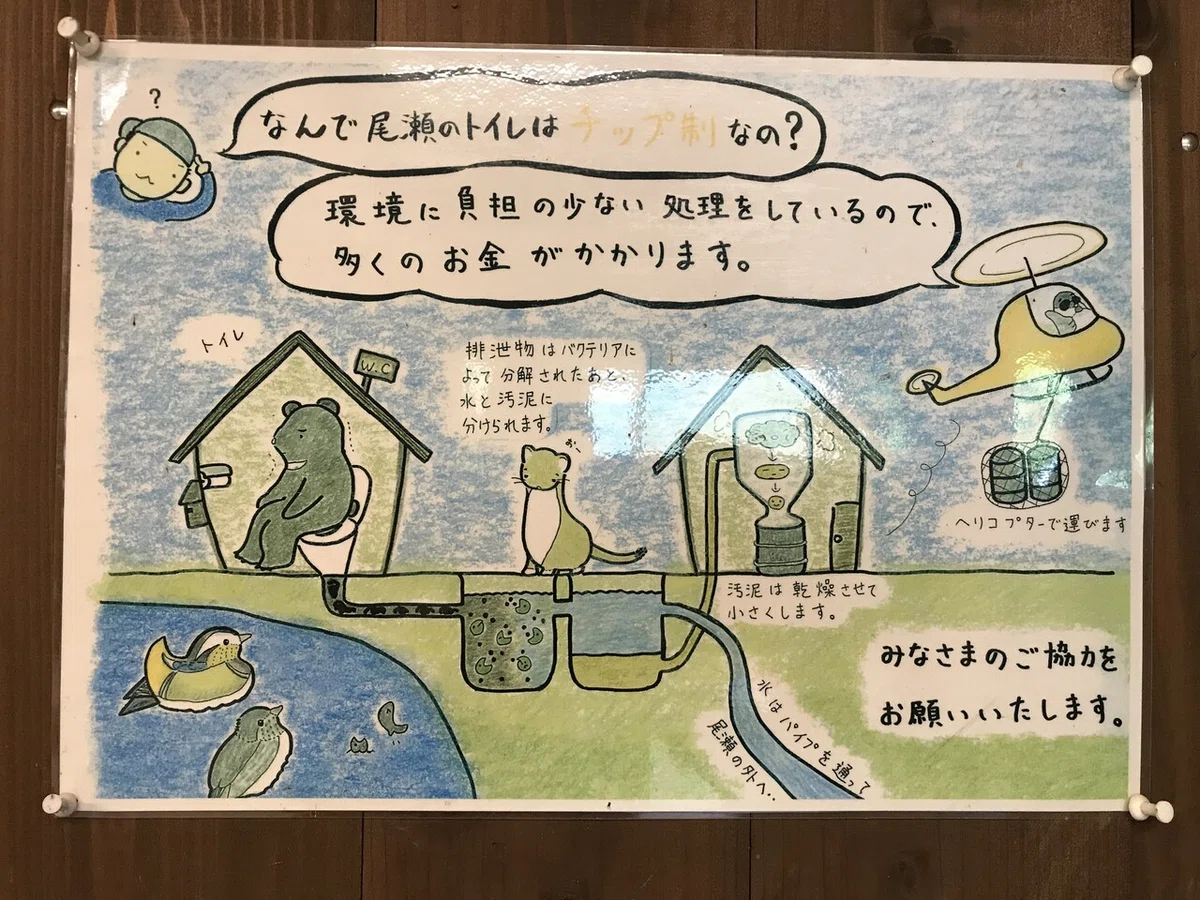 ?
なんで尾瀬のトイレはチップ制なの?
環境に負担の少ない処理をしているので、
多くのお金がかかります。
トイレ
W.C
排泄物はバクテリアに
よって分解されたあと、
水と汚泥に
分けられます。
ヘリコプターで運びます
汚泥は乾燥させて
小さくします。
水はパイプを通って
尾瀬の外へ..
みなさまのご協力を
お願いいたします。